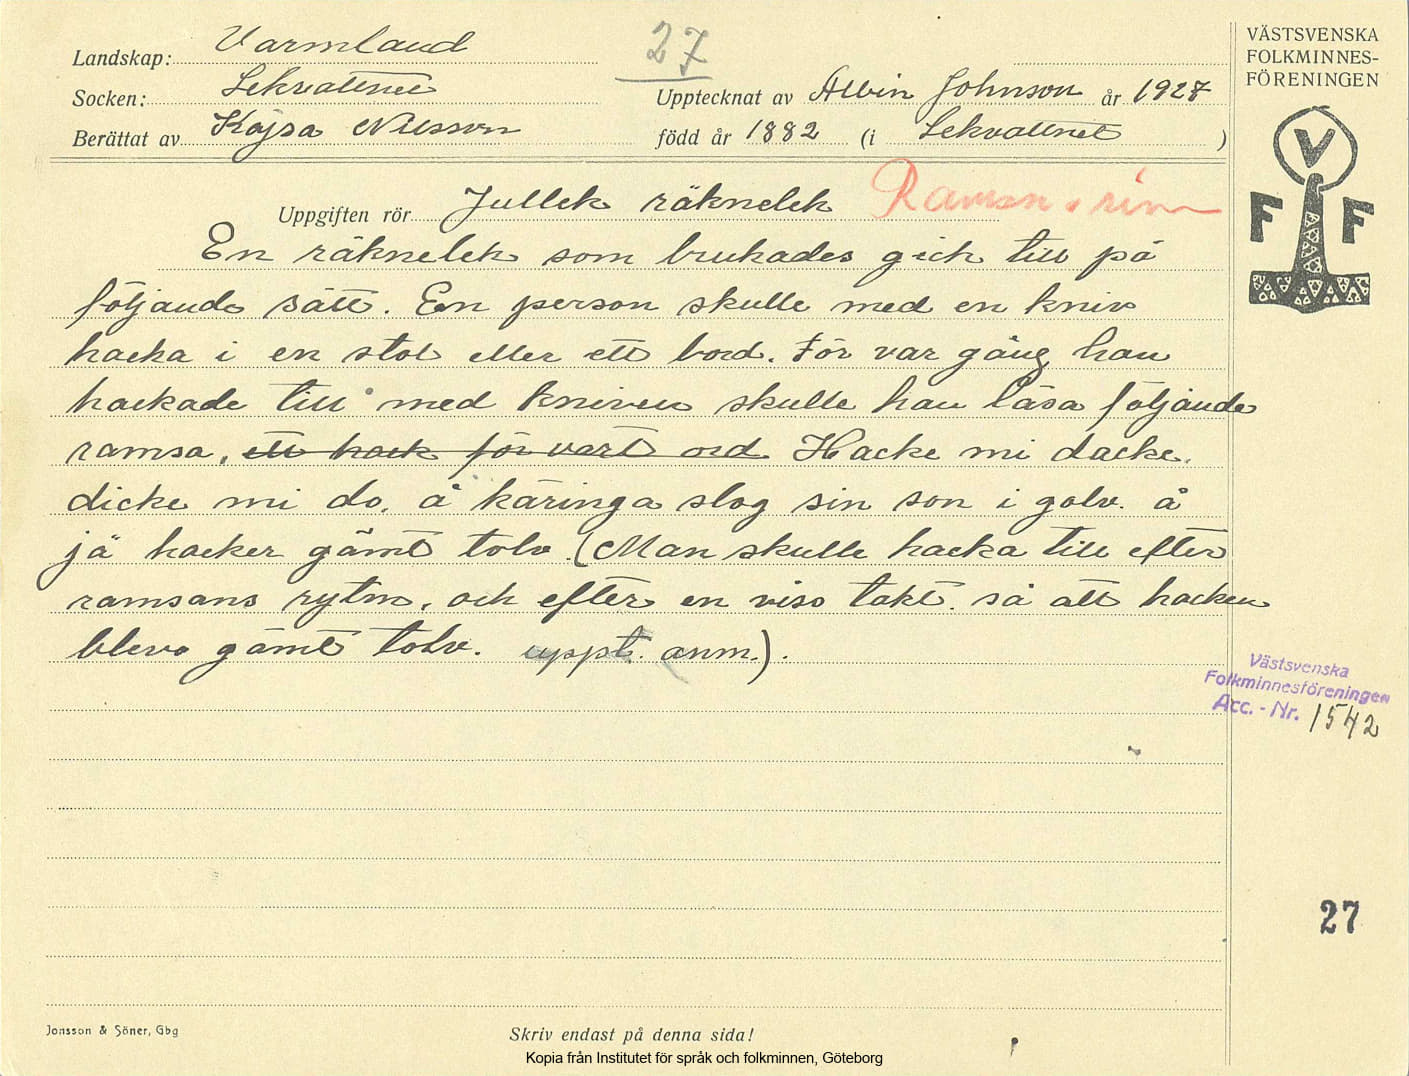 Landskap: Värmland
27
Socken: Lekvattnet
Upptecknat av Albin Johnson år 1927
Berättat av Kajsa Nilsson
född år 1882 (i Lekvattnet )
VÄSTSVENSKA
FOLKMINNES-
FÖRENINGEN
V
F F
Uppgiften rör Jullek räknelek Ramsor o rim
En räknelek som brukades gick till på
följande sätt. En person skulle med en kniv
hacka i en stol eller ett bord. För var gång han
hackade till med kniven skulle han läsa följande
ramsa, ett hack för vart ord Hacke mi dacke,
dicke mi do, å käringa slog sin son i golv. å
jä hacker gämt tolv. (Man skulle hacka till efter
ramsans rytm, och efter en viss takt. så att hacken
blevo gämt tolv. uppt. anm.).
Västsvenska
Folkminnesföreningen
Acc. - Nr. 1542
27
Jonsson & Söner, Gbg
Skriv endast på denna sida!
Kopia från Institutet för språk och folkminnen, Göteborg